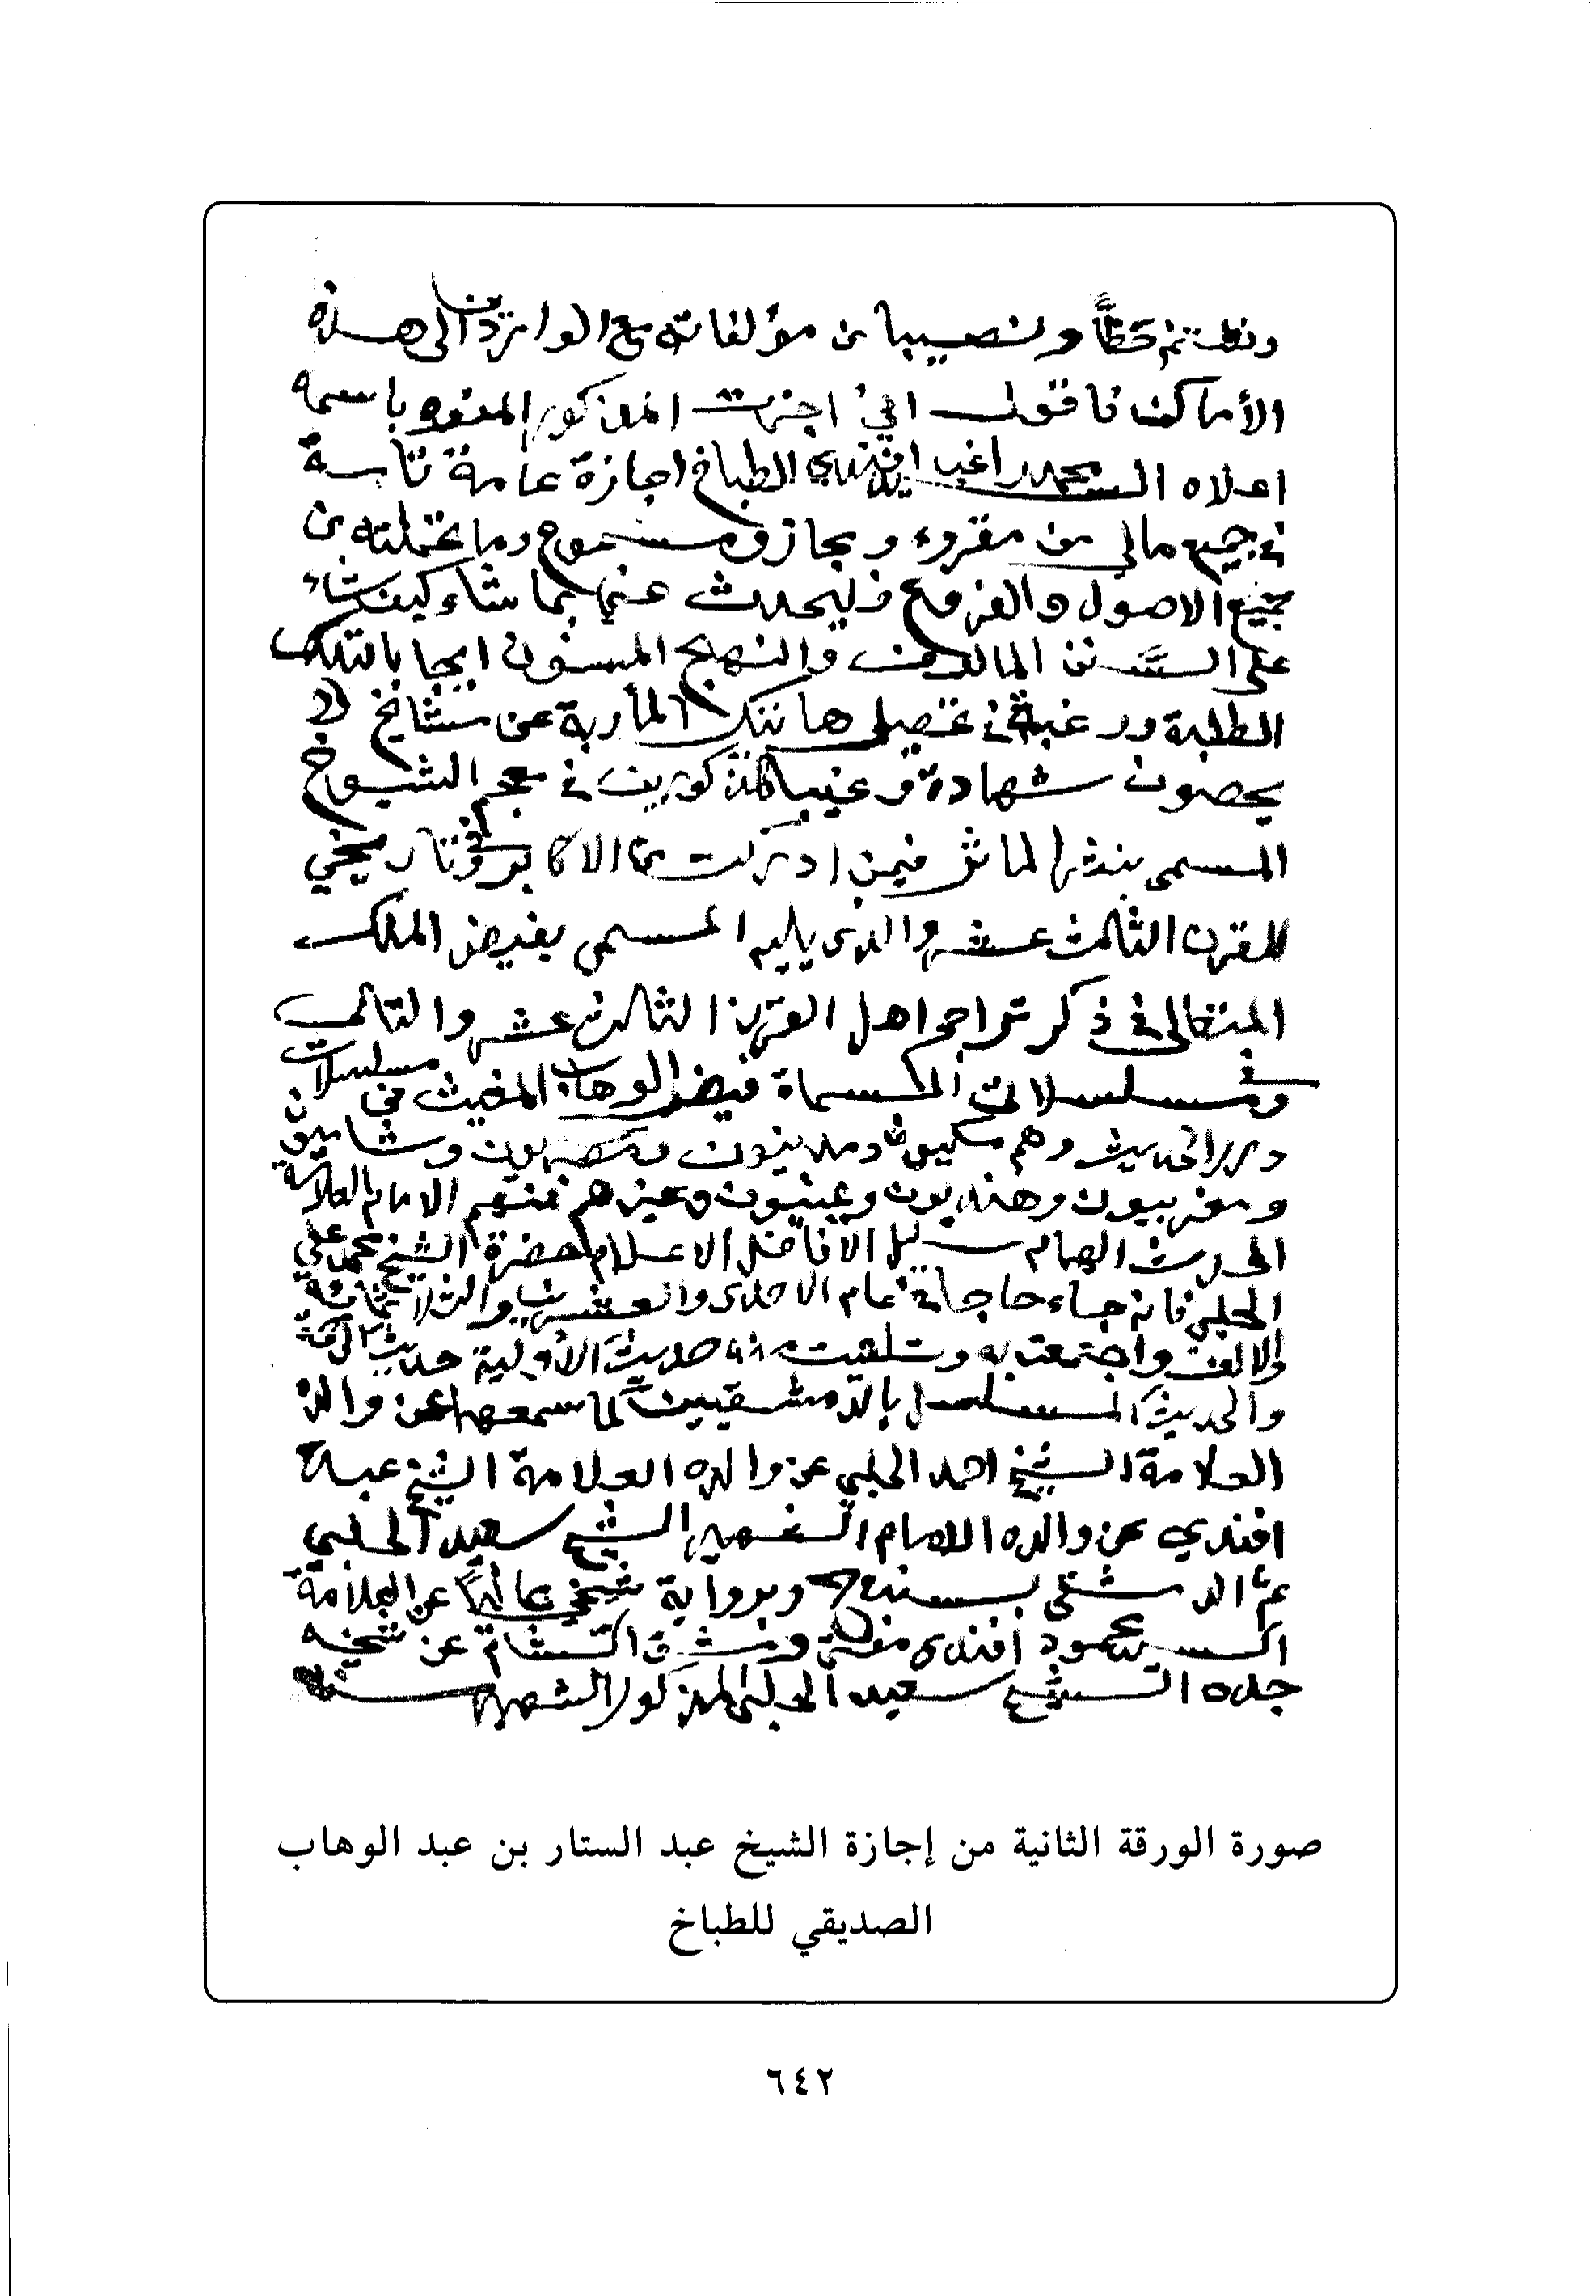 حظًّا ونصيبا من مؤلفاته مع الواردين الى هذه
الأماكن فاقول اني اجزت المذكور المنوه باسمه
اعلاه السيد محمد راغب افندي الطباخ اجازة عامة تامة
في جميع مالي من مقروء ومجاز ومسموع وما تحملته من
جميع الاصول والفروع فليحدث عني بما شاء كيف شاء
على السنن المالوف والنهج المسنون
الطلبة ورغبة في المأربة عن مشائخ لا
يحصون شهادة وغيبا مذكورين في معجم الشيوخ
المسمى بنثر الماثر فيمن ادركت من الاكابر وفي تاريخي
للقرن الثالث عشر والذى يليه المسمى بفيض الملك
المتعالى في ذكر تراجم اهل القرن الثالث عشر والتالي
وفي مسلسلاتي المسماة فيض الوهاب المغيث في مسلسلات
درر الحديث وهم مكيون ومدنيون ومصريون وشاميون
ومغربيون وهنديون ويمنيون وغيرهم فمنهم الامام العلامة
المحدث الهمام سليل الأفاضل الاعلام حضرة الشيخ محمد علي
الحلبي فانه جاء حاجا في عام الاحدى والعشرين والثلاثمائة
والالف واجتمعت به وتلقيت منه حديث الأولية حديث الرحمة
والحديث المسلسل بالدمشقيين كما سمعها عن والده
العلامة الشيخ احمد الحلبي عن والده العلامة الشيخ عبد الله
افندي عن والده الامام الشهير الشيخ سعيد الحلبي
ثم الدمشقي بسنده وبرواية شيخي عاليًا عن العلامة
السيد محمود افندى مفتي دمشق الشام عن شيخه
جده الشيخ سعيد الحلبي المذكور الشهير
صورة الورقة الثانية من إجازة الشيخ عبد الستار بن عبد الوهاب
الصديقي للطباخ
٦٤٢